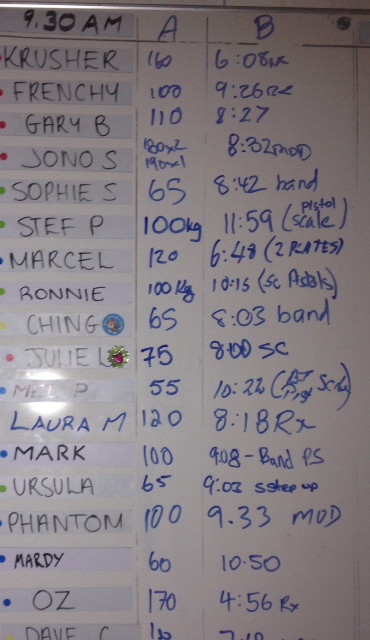 9.30 AM A B
KRUSHER 160 6:08
FRENCHY 100 9:26
GARY B 110 8:27
JONO S 180x2 190x1 8:32 MOD
SOPHIE S 65 8:42 band
STEF P 100kg 11:59 (pistol scale)
MARCEL 120 6:48 (2 PLATES)
RONNIE 100 Kg 10:15 (Sc Pistols)
CHING 65 8:03 band
JULIE L 75 8:00 SC
MEL P 55
LAURA M 120 8:18 Rx
MARK 100 9:08 - Band PS
URSULA 65 9:03 step up
PHANTOM 100 9.33 MOD
MARDY 60 10.50
OZ 170 4:56 Rx
DAVE C